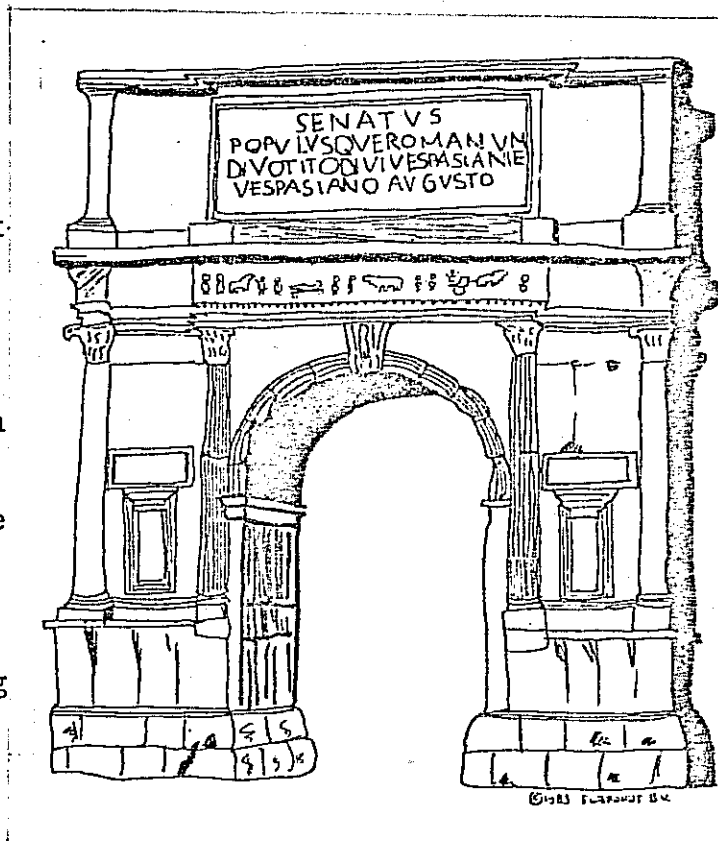 SENATVS
POPVLVSQVEROMANVN
DIVOTITODIVIVESPASIANIE
VESPASIANO AVGVSTO
©1983